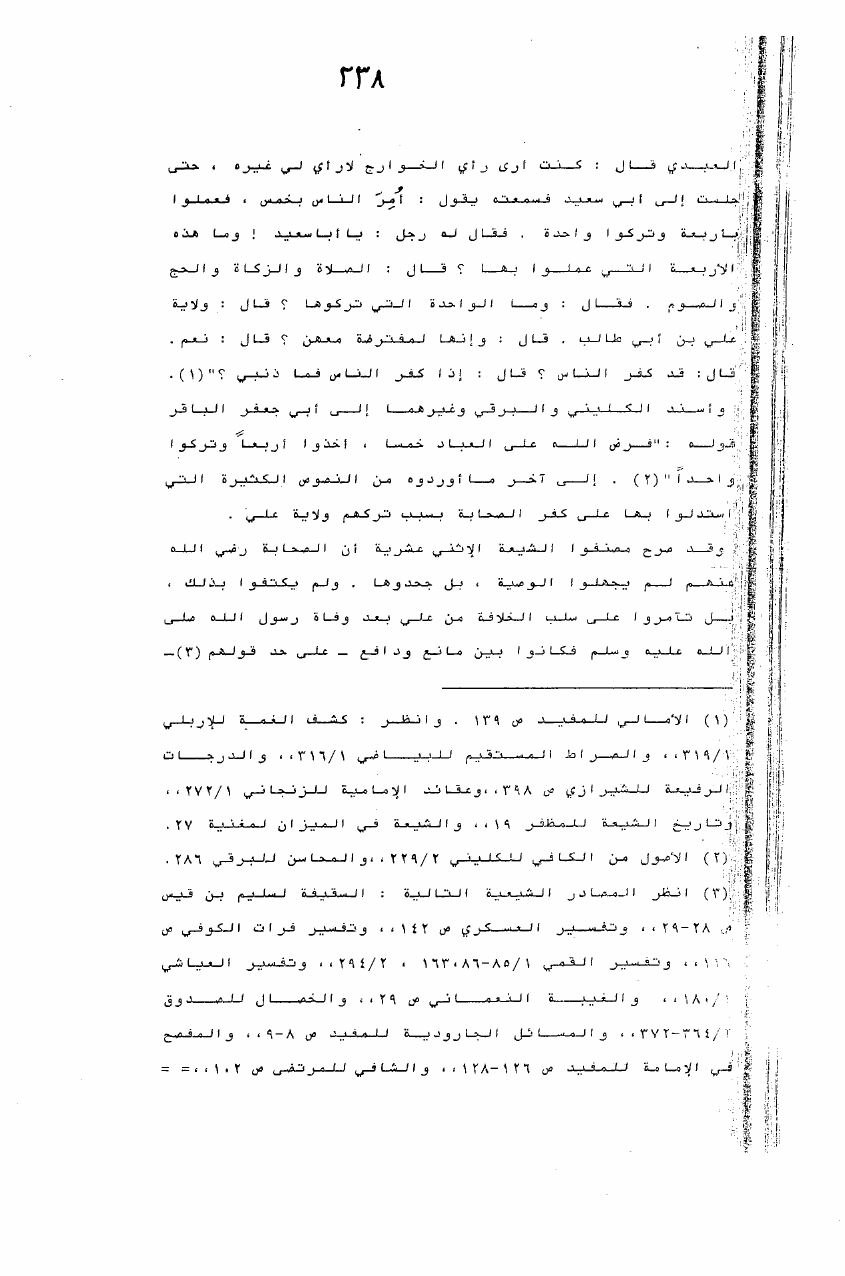 ٢٣٨
العبدي قال : كنت أرى رأي الخوارج لارأي لي غيره ، حتى
جلست إلى أبي سعيد فسمعته يقول : أُمِرَ الناس بخمس ، فعملوا
بأربعة وتركوا واحدة . فقال له رجل : ياأباسعيد ! وما هذه
الأربعة التي عملوا بها ؟ قال : الصلاة والزكاة والحج
والصوم . فقال : وما الواحدة التي تركوها ؟ قال : ولاية
علي بن أبي طالب . قال : وإنها لمفترضة معهن ؟ قال : نعم .
قال: قد كفر الناس ؟ قال : إذا كفر الناس فما ذنبي ؟"(١) .
وأسند الكليني والبرقي وغيرهما إلى أبي جعفر الباقر
قوله : "فرض الله على العباد خمسا ، أخذوا أربعاً وتركوا
واحداً"(٢) . إلى آخر ماأوردوه من النصوص الكثيرة التي
استدلوا بها على كفر الصحابة بسبب تركهم ولاية علي .
وقد صرح مصنفوا الشيعة الإثني عشرية أن الصحابة رضي الله
عنهم لم يجهلوا الوصية ، بل جحدوها . ولم يكتفوا بذلك ،
بل تآمروا على سلب الخلافة من علي بعد وفاة رسول الله صلى
الله عليه وسلم فكانوا بين مانع ودافع – على حد قولهم (٣)–
(١) الأمالي للمفيد ص ١٣٩ . وانظر : كشف الغمة للإربلي
٣١٩/١،، والصراط المستقيم للبياضي ٣١٦/١،، والدرجات
الرفيعة للشيرازي ص ٣٩٨،،وعقائد الإمامية للزنجاني ٢٧٢/١،،
وتاريخ الشيعة للمظفر ١٩،، والشيعة في الميزان لمغنية ٢٧ .
(٢) الأصول من الكافي للكليني ٢٢٩/٢،،والمحاسن للبرقي ٢٨٦ .
(٣) انظر المصادر الشيعية التالية : السقيفة لسليم بن قيس
ص ٢٨-٢٩،، وتفسير العسكري ص ١٤٢،، وتفسير فرات الكوفي ص
،، وتفسير القمي ٨٥/١-١٦٣،٨٦ ، ٢٩٤/٢،، وتفسير العياشي
،، والغيبة النعماني ص ٢٩،، والخصال للصدوق
٣٦٤-٣٧٢،، والمسائل الجارودية للمفيد ص ٨-٩،، والمفصح
في الإمامة للمفيد ص ١٢٦-١٢٨،، والشافي للمرتضى ص ١٠٢،،= =